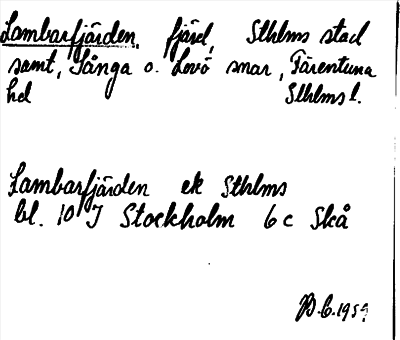 Lambarfjärden, fjärd, Sthlms stad
samt, Sånga o. Lovö snar, Färentuna
hd Sthlms l.
Lambarfjärden ek Sthlms
bl. 10 I Stockholm 6 c Skå
B.C. 1959